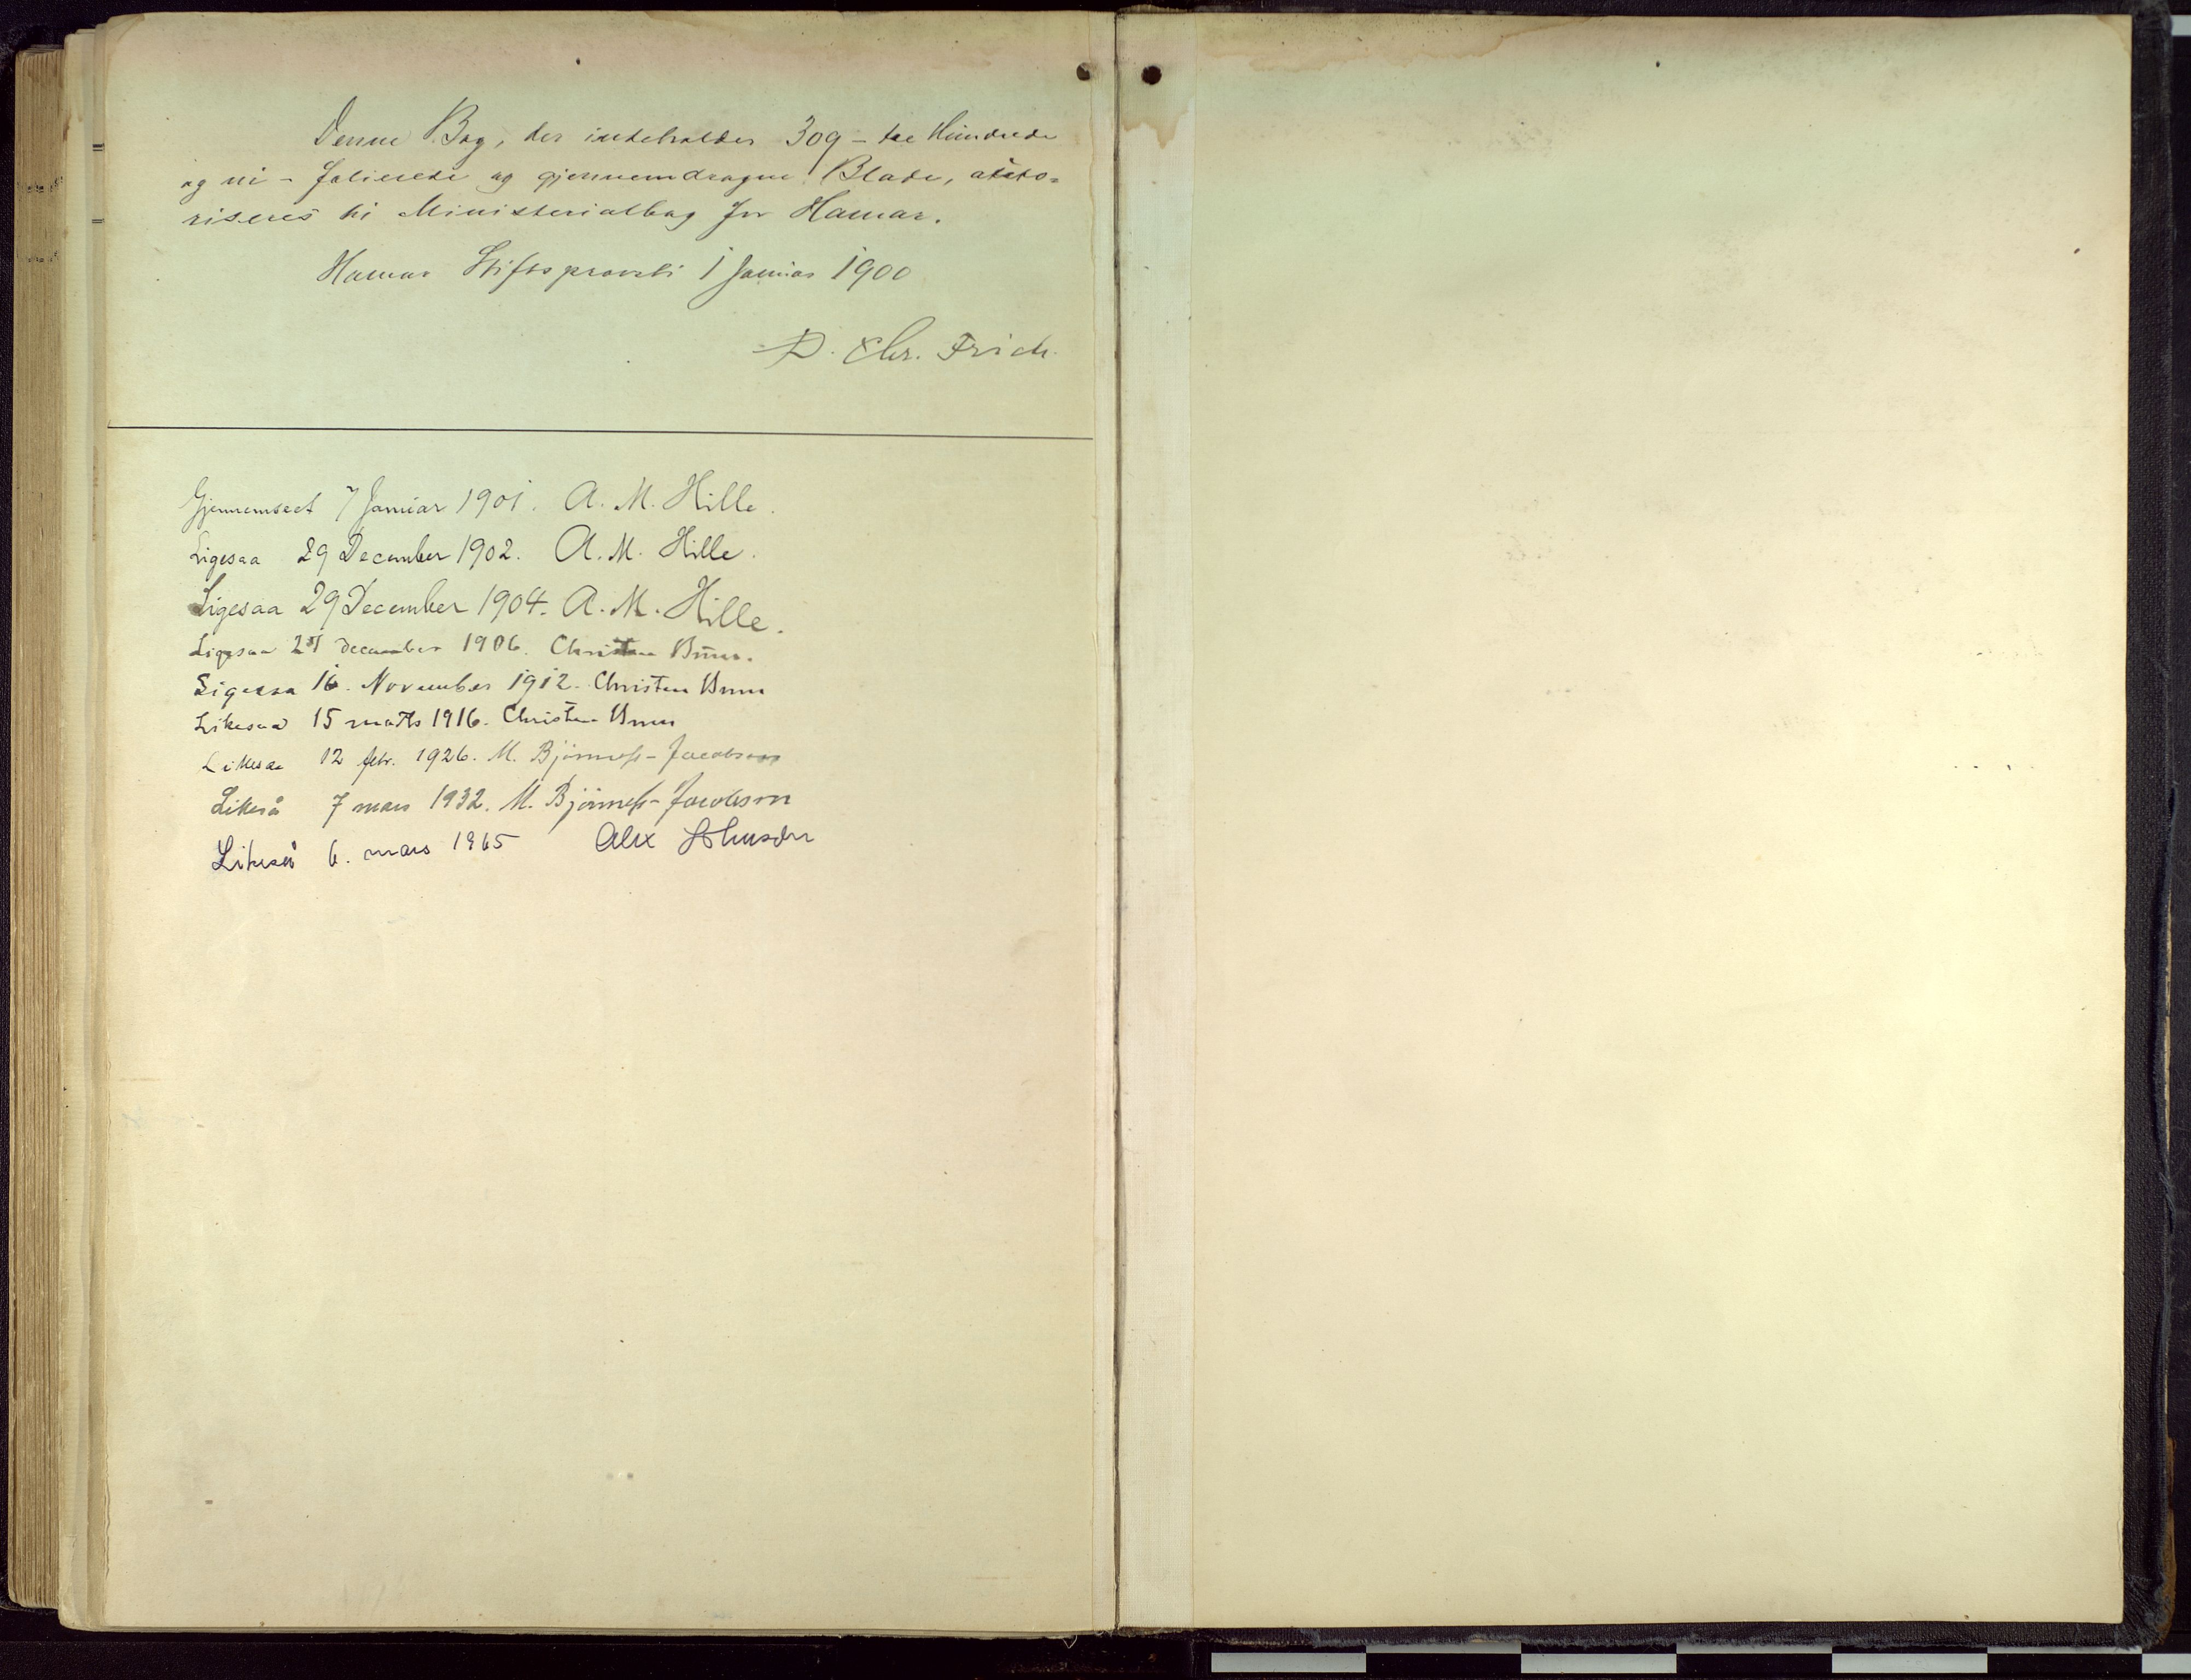 Denne Bog, der indeholder 309 – tre Hundrede
og ni – folierede og gjennemdragne Blade, auto=
riseres til Ministerialbog for Hamar.
Hamar Stiftsprovsti 1 Januar 1900
D. Chr. Frich.
Gjennemseet 7 Januar 1901. A. M. Hille.
Ligesaa 29 December 1902. A. M. Hille.
Ligesaa 29 December 1904. A. M. Hille.
Ligesaa December 1906. Christen Brun.
Ligesaa 16. November 1912. Christen Brun
Likesaa 15 marts 1916. Christen Brun
Likesaa 12 febr. 1926. M. Bjónness-Jacobsen
Likeså 7 mars 1932. M. Bjónness-Jacobsen
Likeså 6. mars 1965 Alex Johnson